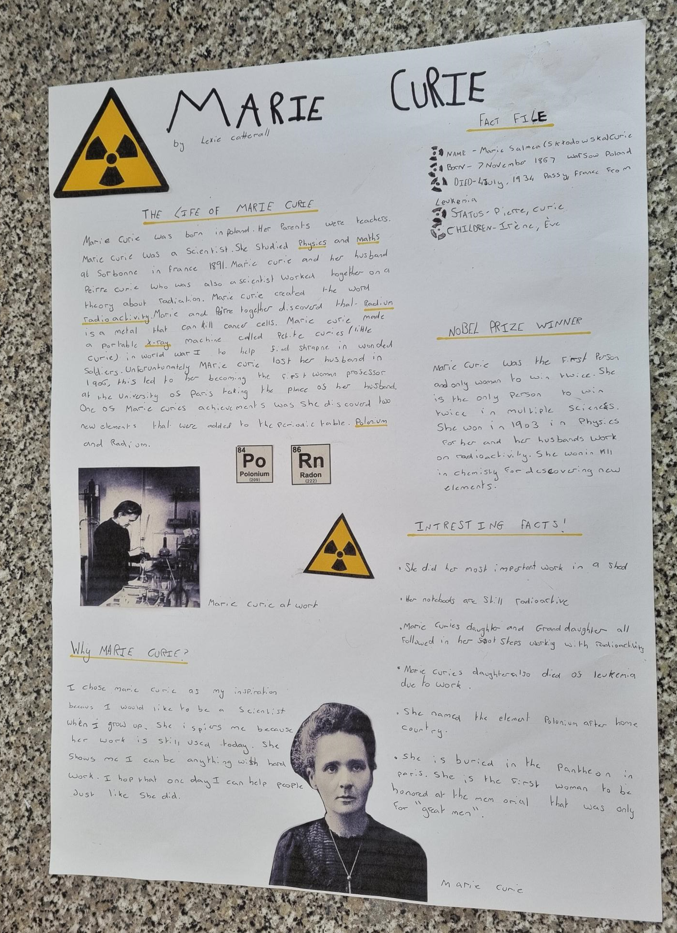 MARIE CURIE
by Lexie Catterall
FACT FILE
NAME - Marie Salmea (Skłodowska) Curie
BORN - 7 November 1867 Warsow Poland
DIED - 4 July, 1934 Passy, France From
Leukemia
STATUS - Pierre, Curie
CHILDREN - Irène, Ève
THE LIFE OF MARIE CURIE
Marie Curie was born in Poland. Her Parents were teachers.
Marie Curie was a Scientist. She studied Physics and maths
at Sorbonne in France 1891. Marie Curie and her husband
Peirre Curie who was also a scientist worked together on a
theory about radiation. Marie Curie created the word
radioactivity. Marie and Peirre together discoverd that Radium
is a metal that can kill cancer cells. Marie Curie made
a portable X-ray machine called Petite curies (little
curies) in world war I to help find shrapne in wounded
Soldiers. Unfortunately Marie Curie lost her husband in
1906, this led to her becoming the first woman professor
at the University of Paris taking the place of her husband.
One of Marie curies achievements was she discoverd two
new elements that were added to the periodic table. Polonium
and Radium.
84 Po Polonium (209)
86 Rn Radon (222)
Marie curie at work
NOBEL PRIZE WINNER
Marie Curie was the First Person
and only woman to win twice. She
is the only Person to win
twice in multiple sciences.
She won in 1903 in Physics
For her and her husbands work
on radioactivity. She won in 1911
in chemisty For descovering new
elements.
INTRESTING FACTS!
• She did her most important work in a shed
• Her notebooks are still radioactive
• Marie Curies daughter and Grand daughter all
followed in her foot steps working with radioactivity
• Marie curies daughter also died of leukemia
due to work.
• She named the element Polonion after home
country.
• She is buried in the Pantheon in
paris. She is the first woman to be
honored at the memorial that was only
for "great men".
Why MARIE CURIE?
I chose marie curie as my inspiration
because I would like to be a Scientist
when I grow up. She ispires me because
her work is still used today. She
shows me I can be anything with hard
work. I hop that one day I can help people
Just like She did.
Marie Curie